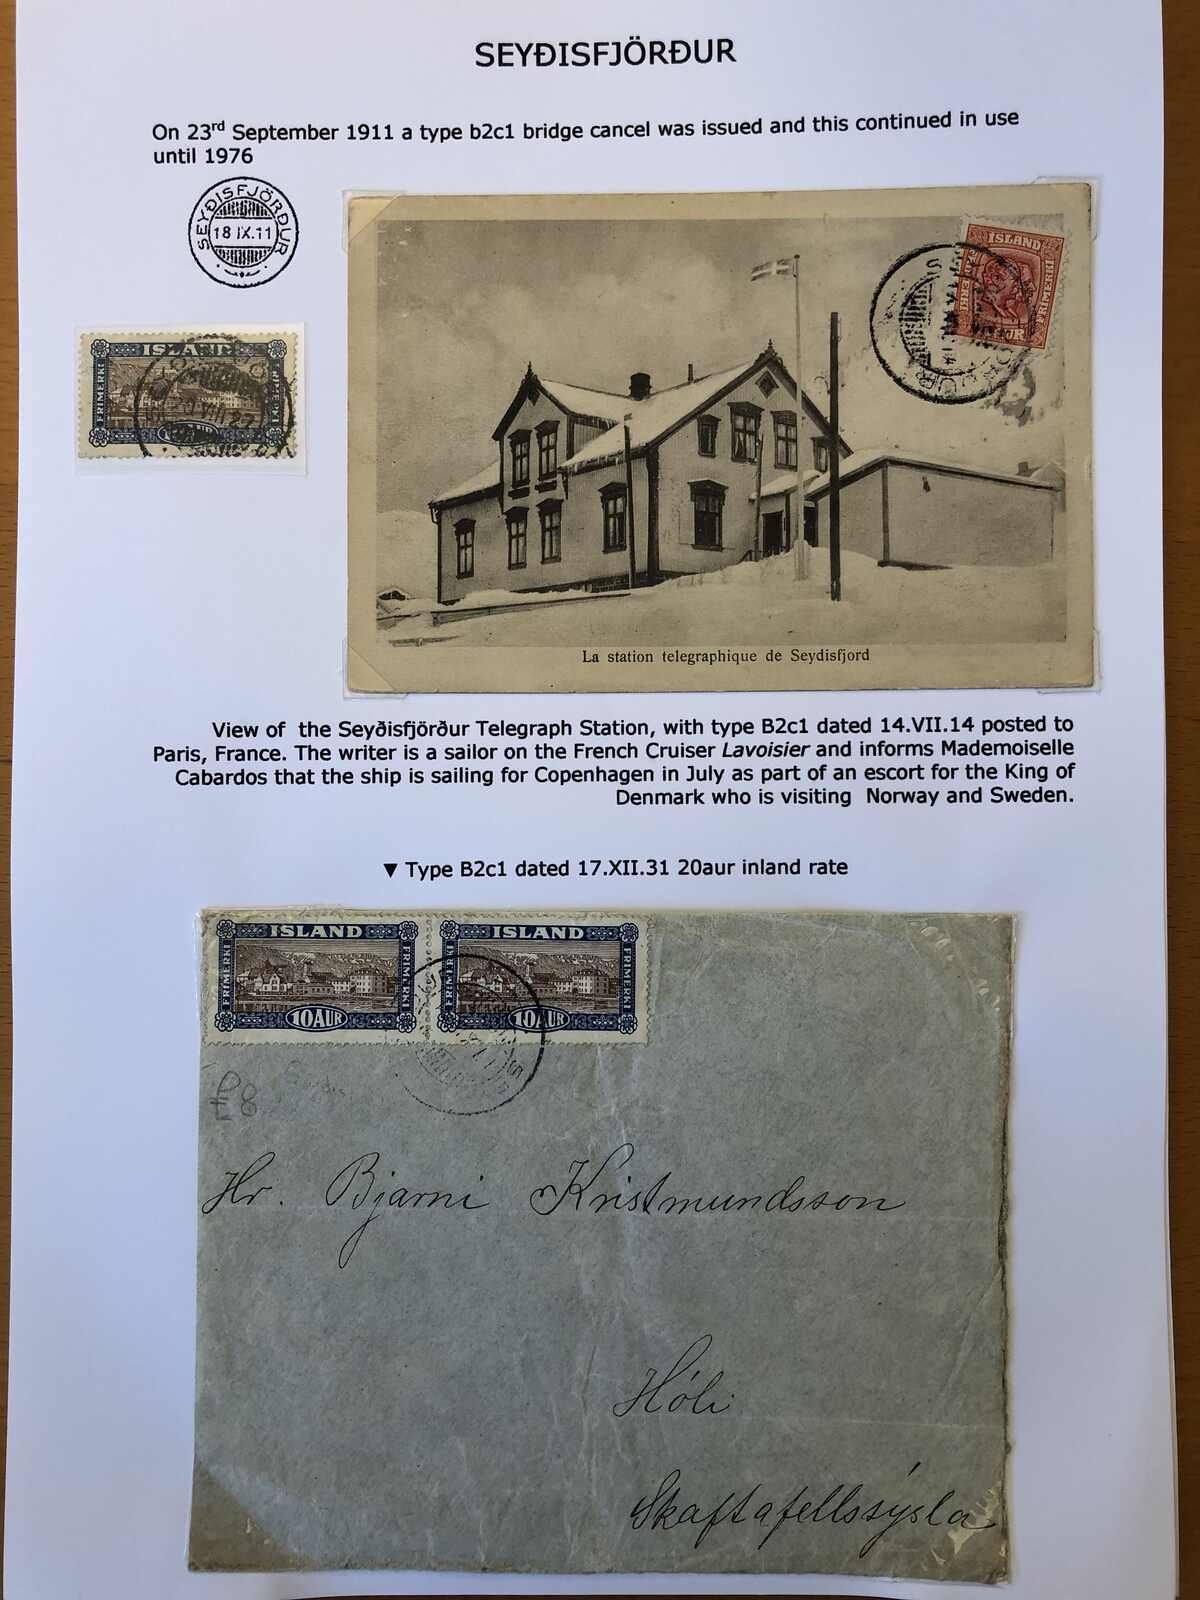 SEYÐISFJÖRÐUR
On 23rd September 1911 a type b2c1 bridge cancel was issued and this continued in use
until 1976
SEYÐISFJÖRÐUR
18 IX.11
ÍSLAND
FRIMERKI
ISLAND
FRIMERKI
FRIMERKI
La station telegraphique de Seydisfjord
View of the Seyðisfjörður Telegraph Station, with type B2c1 dated 14.VII.14 posted to
Paris, France. The writer is a sailor on the French Cruiser Lavoisier and informs Mademoiselle
Cabardos that the ship is sailing for Copenhagen in July as part of an escort for the King of
Denmark who is visiting Norway and Sweden.
▼ Type B2c1 dated 17.XII.31 20aur inland rate
ISLAND
FRIMERKI
FRIMERKI
10AUR
ISLAND
FRIMERKI
FRIMERKI
10AUR
Hr. Bjarni Kristmundsson
Hóli
Skaftafellssýsla